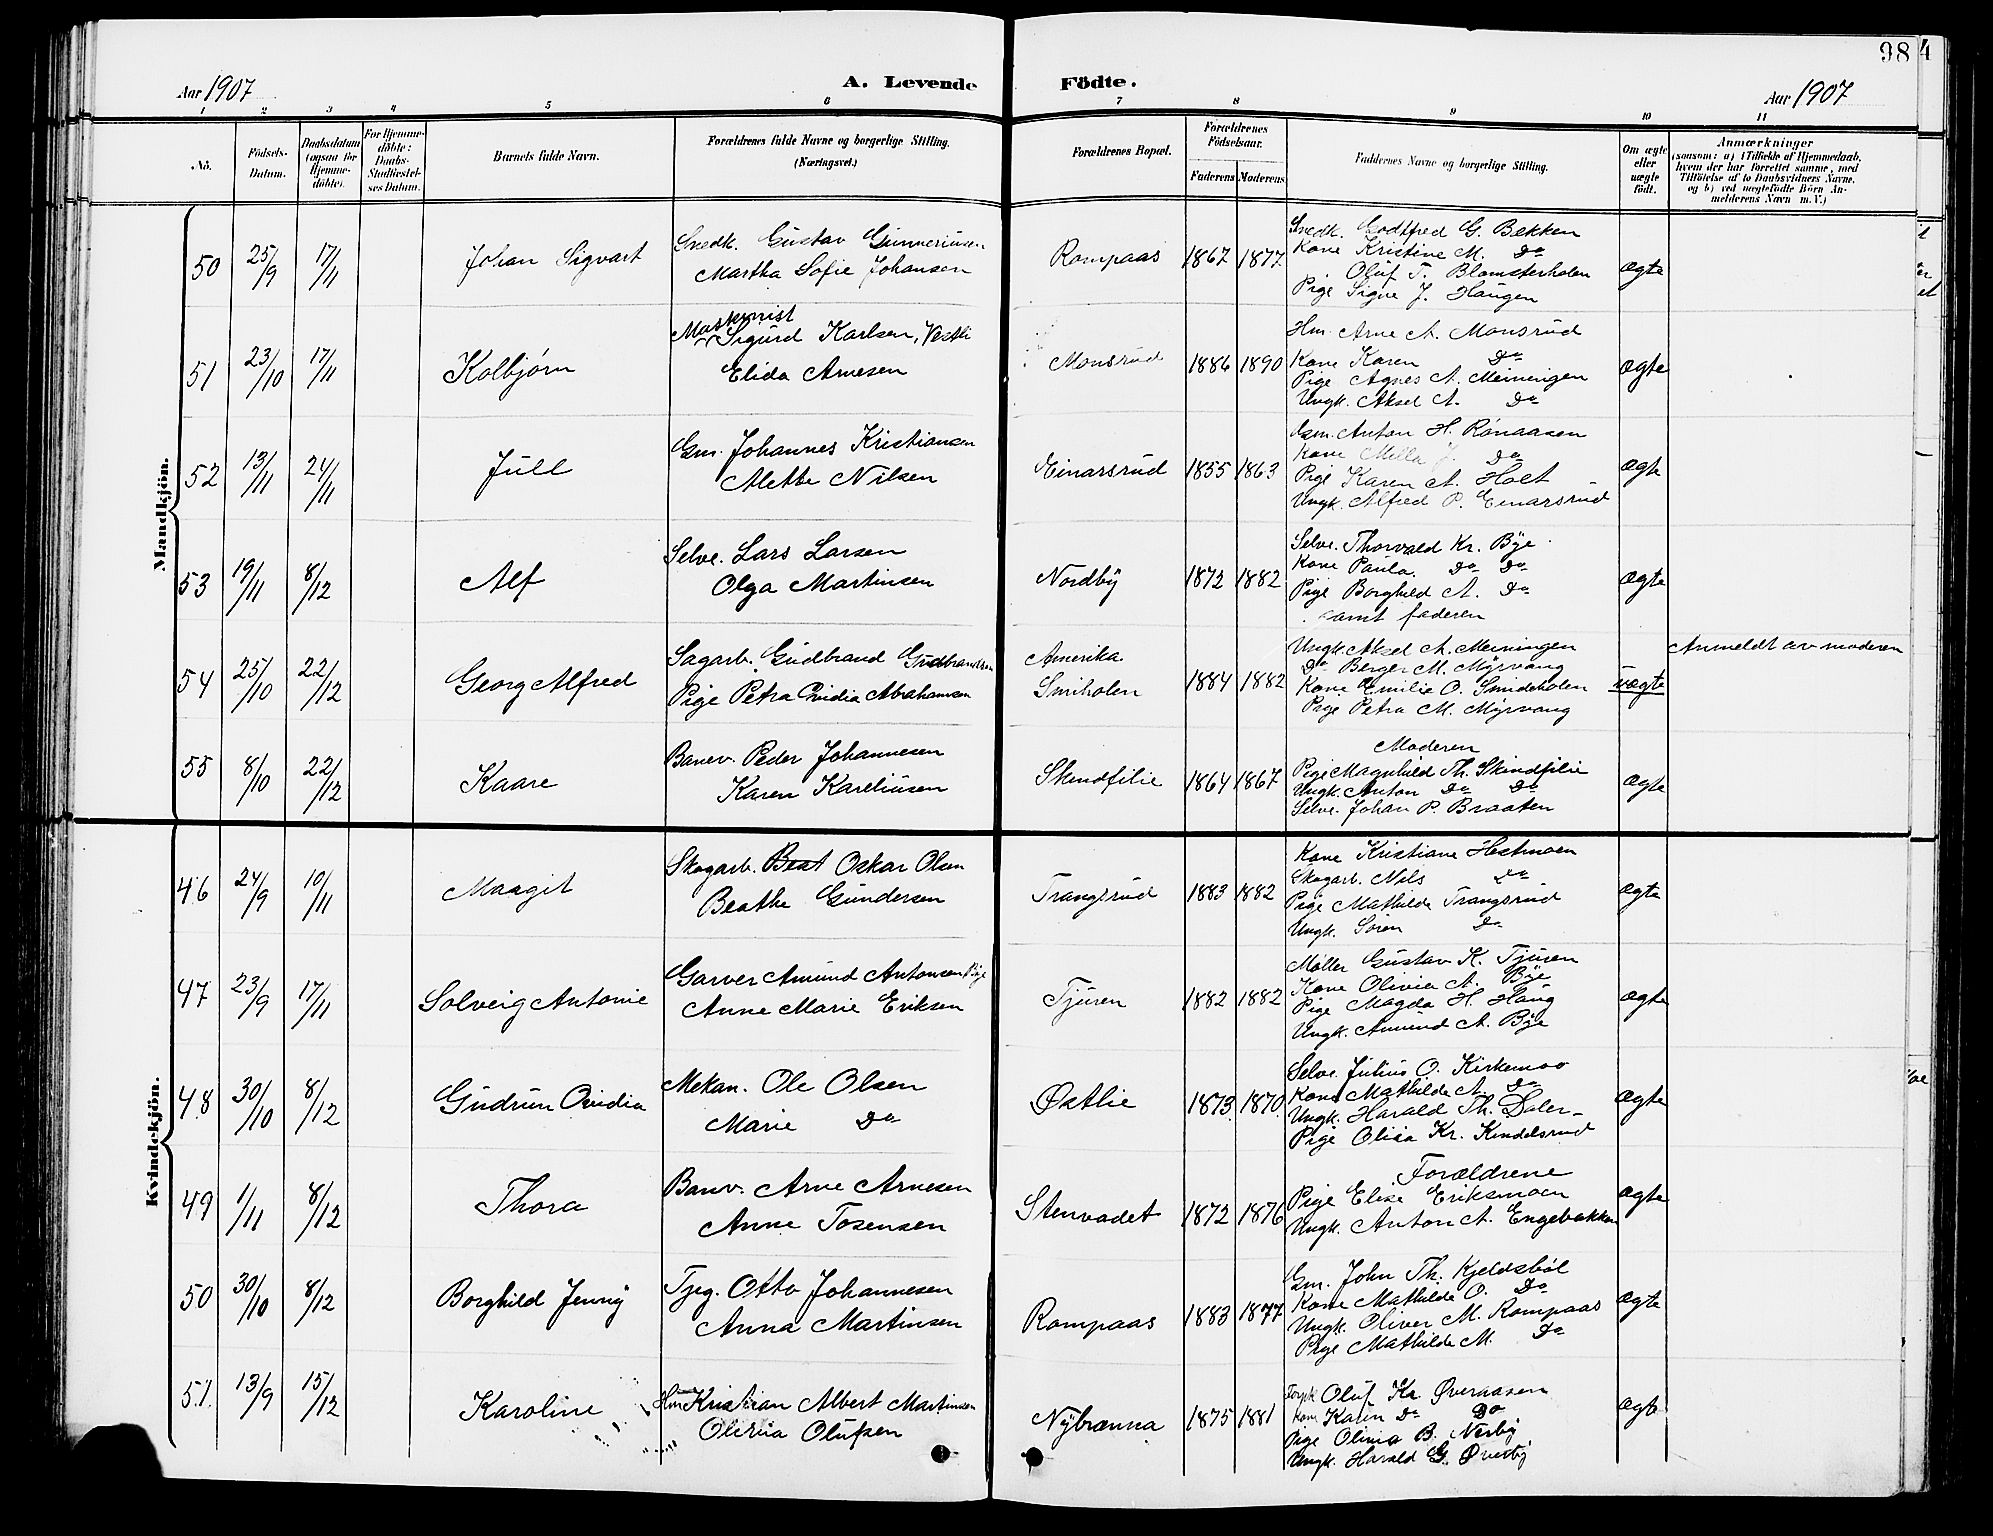 98 4
Aar 1907 A. Levende Födte. Aar 1907
1 2 3 4 5 6 7 8 9 10 11
No. Födsels-Datum. Daabsdatum (ogsaa for Hjemme-döbte). For Hjemme-döbte: Daabs-Stadfæstel-ses Datum. Barnets fulde Navn. Forældrenes fulde Navne og borgerlige Stilling. (Næringsvei.) Forældrenes Bopæl. Forældrenes Födselsaar. Faderens Moderens Faddernes Navne og borgerlige Stilling. Om ægte eller uægte födt. Anmærkninger (saasom: a) i Tilfælde af Hjemmedaab, hvem der har forrettet samme, med Tilföielse af to Daabsvidners Navne, og b) ved uægtefödte Börn An-melderens Navn m. V.)
Mandkjön.
50 25/9 17/11 Johan Sigvart Snedk. Gustav Gunneriusen Rompaas 1867 1877 Snedk. Godtfred G. Bakken ægte
Martha Sofie Johansen Kone Kristine M. Do
Oluf T. Blomsterholen
Pige Signe J. Haugen
51 23/10 17/11 Kolbjørn Maskinist Sigurd Karlsen, Vestli Monsrud 1886 1890 Hm. Arne A. Monsrud ægte
Elida Arnesen Kone Karen Do
Pige Agnes A. Meiningen
Ungk. Aksel A. Do
52 13/11 24/11 Jull Gm. Johannes Kristiansen Einarsrud 1855 1863 Gm. Anton H. Rønaasen ægte
Alette Nilsen Kone Milla J. Do
Pige Karen A. Holt
Ungk. Alfred P. Einarsrud
53 19/11 8/12 Alf Selve. Lars Larsen Nordby 1872 1882 Selve. Thorvald Kr. Bye ægte
Olga Martinsen Kone Paula Do Do
Pige Borghild A. Do
samt faderen
54 25/10 22/12 Georg Alfred Sagarb. Gudbrand Gudbrandsen Amerika. 1884 1882 Ungk. Aksel A. Meiningen uægte Anmeldt av moderen
Pige Petra Ovidia Abrahamsen Smiholen Do Berger M. Myrvang
Kone Emilie O. Smideholen
Pige Petra M. Myrvang
55 8/10 22/12 Kaare Banev. Peder Johannesen Skindfilie 1864 1867 Moderen ægte
Karen Kareliusen Pige Magnhild Th. Skindfilie
Ungk. Anton Do Do
Selve. Johan P. Braaten
Kvindekjön.
46 24/9 10/11 Maagit Skogarb. Oskar Olsen Trangsrud 1883 1882 Kone Kristiane Hestmoen ægte
Beathe Gundersen Skogarb. Nils Do
Pige Mathilde Trangsrud
Ungk. Søren Do
47 23/9 17/11 Solveig Antonie Garver Amund Antonsen Bye Tjuren 1882 1882 Møller Gustav K. Tjuren ægte
Anne Marie Eriksen Kone Olivia A. Bye
Pige Magda H. Haug
Ungk. Amund A. Bye
48 30/10 8/12 Gudrun Ovidia Mekan. Ole Olsen Østlie 1873 1870 Selve. Julius O. Kirkemoo ægte
Marie Do Kone Mathilde A. Do
Ungk. Harald Th. Daler-
Pige Olisa Kr. Kindelsrud
49 1/11 8/12 Thora Banv. Arne Arnesen Stenvadet 1872 1876 Forældrene ægte
Anne Tosensen Pige Elise Eriksmoen
Ungk. Anton A. Engebakken
50 30/10 8/12 Borghild Jenny Tjeg. Otto Johannesen Rompaas 1883 1877 Gm. John Th. Kjeldsbøl ægte
Anna Martinsen Kone Mathilde O. Do
Ungk. Oliver M. Rompaas
Pige Mathilde M. Do
51. 13/9 15/12 Karoline Hm. Kristian Albert Martinsen Nybrænna 1875 1881 Oluf Kr. Øveraasen ægte
Olufsen Kone Karin Do Do
Pige Olivia B. Nesby
Ungk. Harald G. Øverby